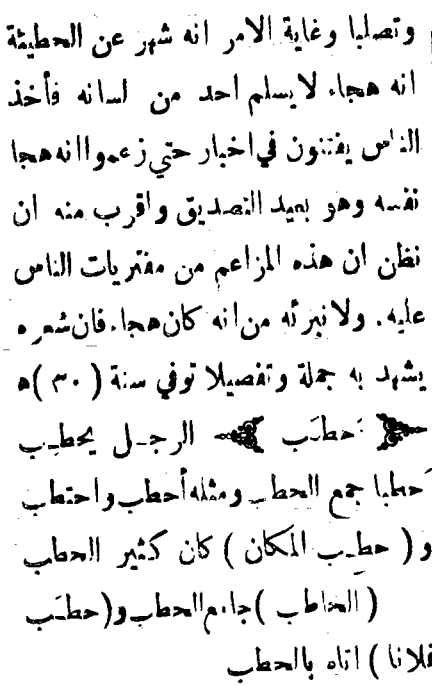 وتصلبا وغاية الامر انه شهر عن الحطيئة
انه هجاء لايسلم احد من لسانه فأخذ
الناس يفتنون في اخبار حتي زعموا انه هجا
نفسه وهو بعيد التصديق واقرب منه ان
نظن ان هذه المزاعم من مفتريات الناس
عليه . ولا نبرئه من انه كان هجاء فان شعره
يشهد به جملة وتفصيلا توفي سنة ( ٣٠ ) ه
حطَب الرجـل يحطِـب
حَطبا جمع الحطب ومثله أحطب واحتطب
و ( حطِـب المكان ) كان كثير الحطب
( الحاطب ) جامع الحطب و ( حطَـب
فلانا ) اتاه بالحطب